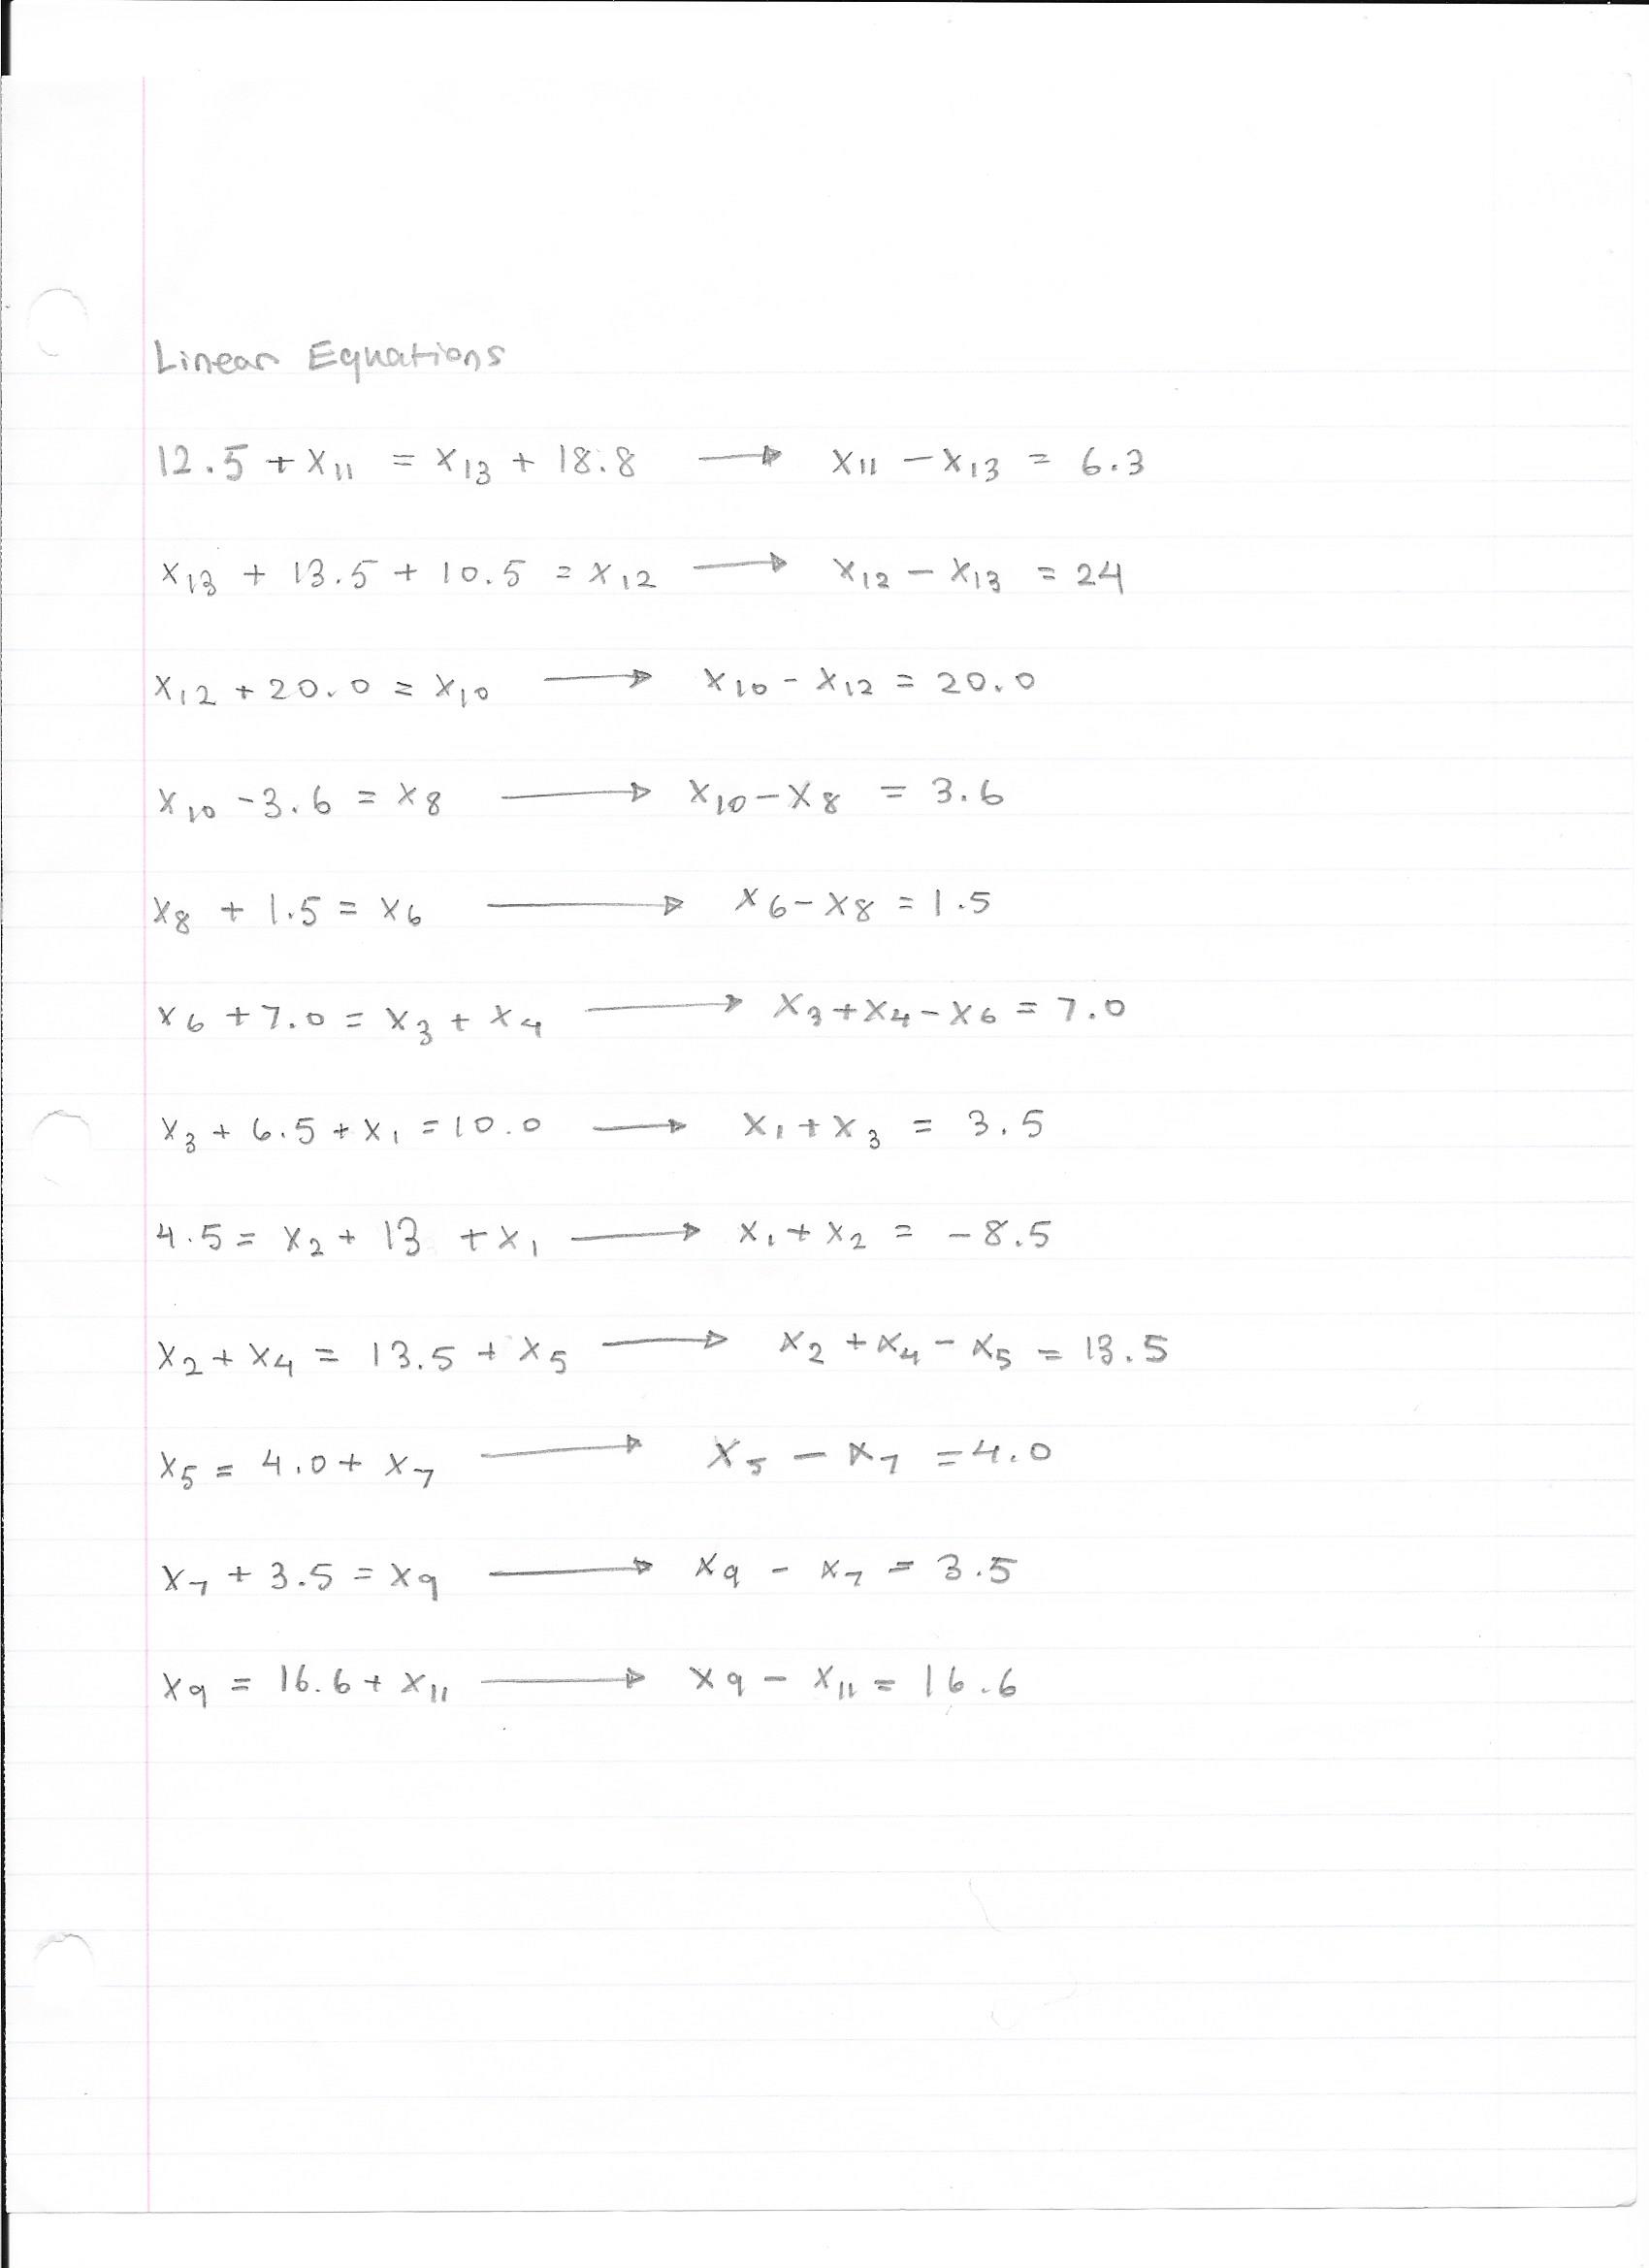 Linear Equations
12.5 + x₁₁ = x₁₃ + 18.8 → x₁₁ - x₁₃ = 6.3
x₁₃ + 13.5 + 10.5 = x₁₂ → x₁₂ - x₁₃ = 24
x₁₂ + 20.0 = x₁₀ → x₁₀ - x₁₂ = 20.0
x₁₀ - 3.6 = x₈ → x₁₀ - x₈ = 3.6
x₈ + 1.5 = x₆ → x₆ - x₈ = 1.5
x₆ + 7.0 = x₃ + x₄ → x₃ + x₄ - x₆ = 7.0
x₃ + 6.5 + x₁ = 10.0 → x₁ + x₃ = 3.5
4.5 = x₂ + 13 + x₁ → x₁ + x₂ = -8.5
x₂ + x₄ = 13.5 + x₅ → x₂ + x₄ - x₅ = 13.5
x₅ = 4.0 + x₇ → x₅ - x₇ = 4.0
x₇ + 3.5 = x₉ → x₉ - x₇ = 3.5
x₉ = 16.6 + x₁₁ → x₉ - x₁₁ = 16.6